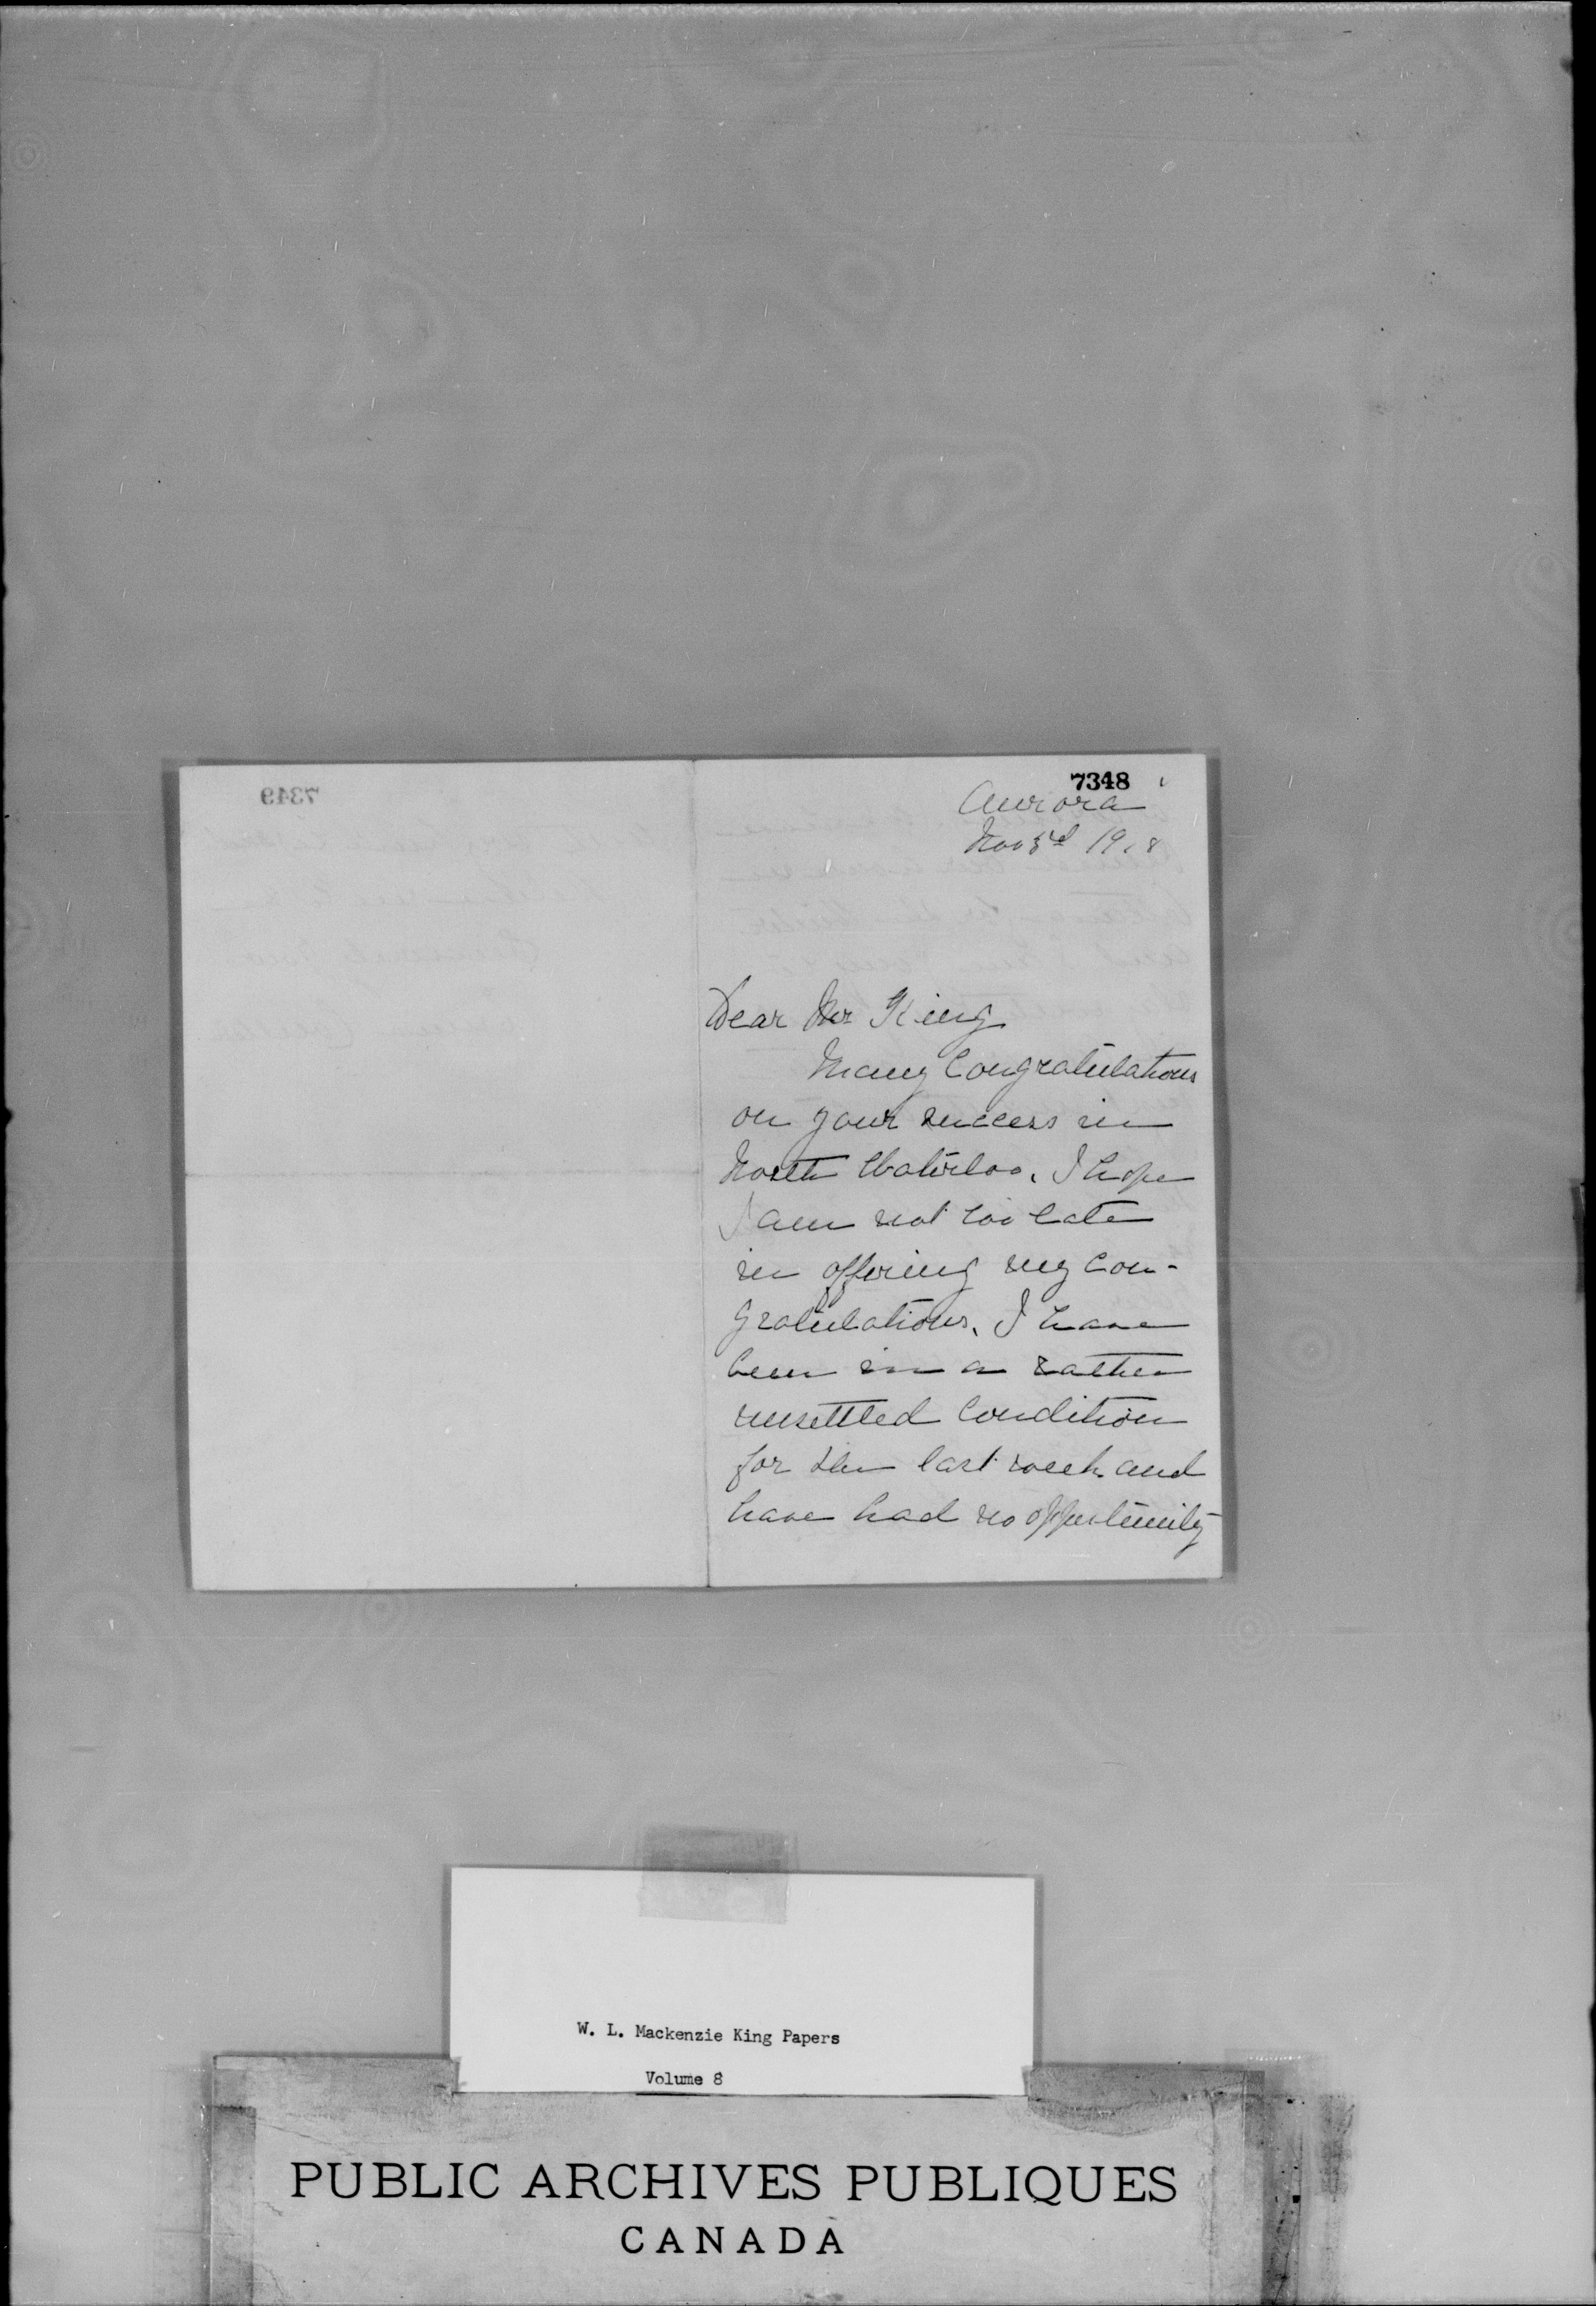 7349
7348
Aurora
Nov 3rd 1908
Dear Mr King
Many Congratulations
on your success in
North Waterloo. I hope
I am not too late
in offering my Con-
gratulations. I have
been in a rather
unsettled Condition
for the last week and
have had no opportunity
W. L. Mackenzie King Papers
Volume 8
PUBLIC ARCHIVES PUBLIQUES
CANADA